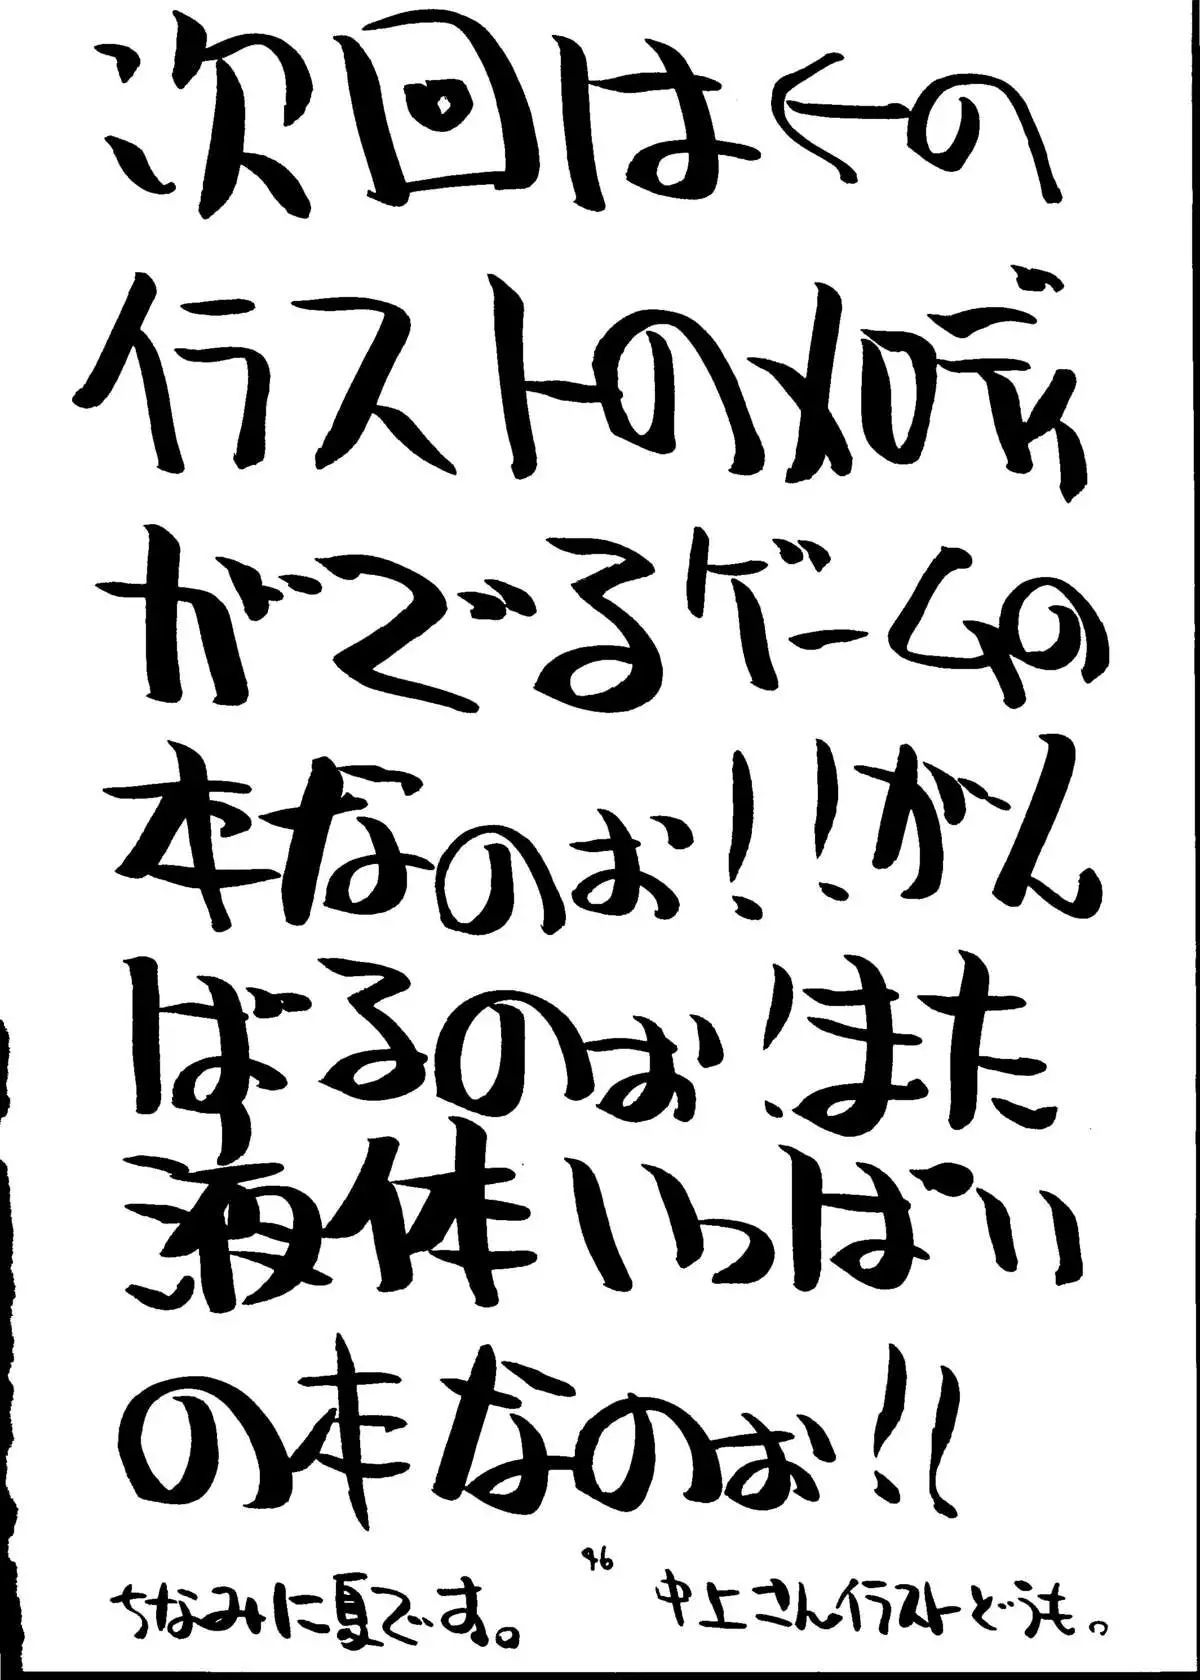 次回は←の
イラストの娘
がでるゲームの
本なのぉ!!がん
ばるのぉ!また
液体いっぱい
の本なのぉ!!
46
ちなみに夏です。
中上さんイラストどうも。